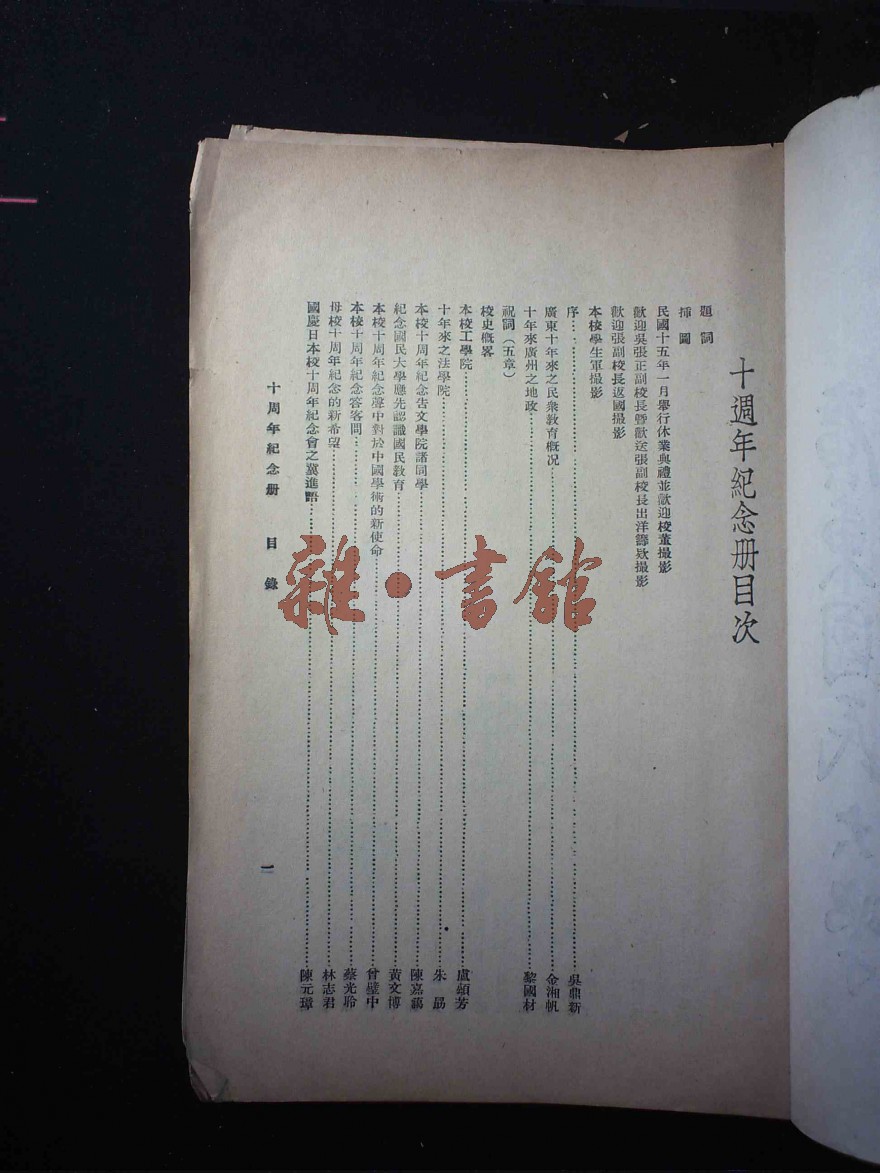 十週年紀念册目次
題詞
插圖
民國十五年一月舉行休業典禮並歡迎校董撮影
歡迎吳張正副校長曁歡送張副校長出洋籌欵撮影
歡迎張副校長返國撮影
本校學生軍撮影
序……吳鼎新
廣東十年來之民衆教育概况……金湘帆
十年來廣州之地政……黎國材
祝詞（五章）
校史概畧
本校工學院……盧頌芳
十年來之法學院……朱勗
本校十周年紀念告文學院諸同學……陳嘉藹
紀念國民大學應先認識國民教育……黃文博
本校十周年紀念聲中對於中國學術的新使命……曾璧中
本校十周年紀念答客問……蔡光聆
母校十周年紀念的新希望……林志君
國慶日本校十周年紀念會之冀進語……陳元璋
十周年紀念册 目錄
一
雜·書館